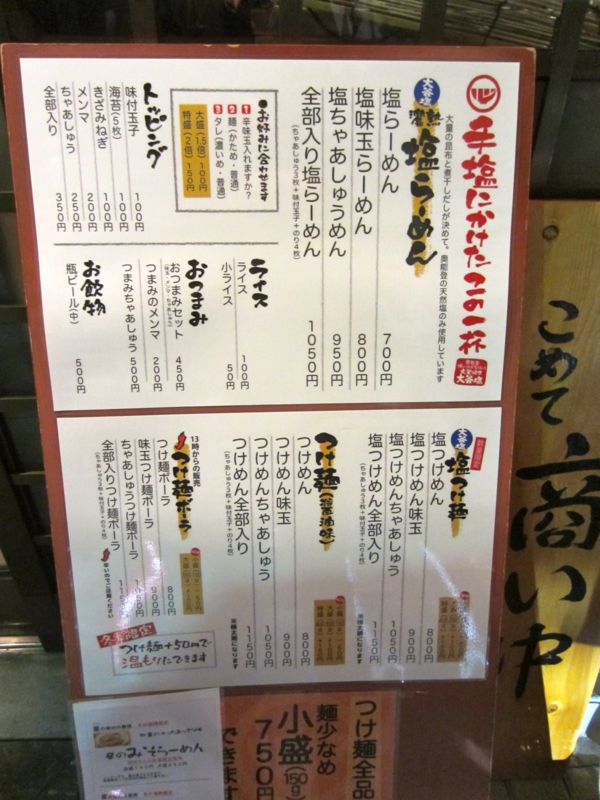 手塩にかけたこの一杯
大谷塩
塩らーめん
大量の昆布と煮干しだしが決めて。奥能登の天然塩のみ使用しています
塩らーめん 700円
塩味玉らーめん 800円
塩ちゃあしゅうめん 950円
全部入り塩らーめん 1050円
(ちゃあしゅう3枚+味付玉子+のり4枚)
●お好みに合わせます
1 辛味玉入れますか?
2 麺(かため・普通)
3 タレ(濃いめ・普通)
大盛(1.5倍)100円
特盛(2倍)150円
トッピング
味付玉子 100円
海苔(5枚) 100円
きざみねぎ 100円
メンマ 200円
ちゃあしゅう 250円
全部入り 350円
ライス
ライス 100円
小ライス 50円
おつまみ
おつまみセット 450円
つまみのメンマ 200円
つまみちゃあしゅう 500円
お飲物
瓶ビール(中) 500円
大谷塩
塩つけ麺
塩つけめん 800円
塩つけめん味玉 900円
塩つけめんちゃあしゅう 1050円
塩つけめん全部入り 1150円
(ちゃあしゅう3枚+味付玉子+のり4枚)
※極太麺になります
つけ麺(醤油味)
つけめん 800円
つけめん味玉 900円
つけめんちゃあしゅう 1050円
つけめん全部入り 1150円
(ちゃあしゅう3枚+味付玉子+のり4枚)
※極太麺になります
13時からの販売
つけ麺ボーラ
つけ麺ボーラ 800円
味玉つけ麺ボーラ 900円
ちゃあしゅうつけ麺ボーラ
全部入りつけ麺ボーラ
(ちゃあしゅう3枚+味付玉子+のり4枚)
冬季限定
つけ麺+50円で
温もりにできます
みそらーめん
つけ麺全品
麺少なめ
小盛(150g)
750円
できます
こめて
商い中